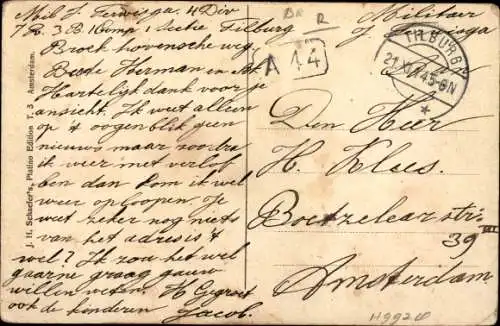 Mil J. Terwisga. 4 Div
7 R. 3 B. 1 Comp 1 Sectie Tilburg
Broek hovensche weg.
Beste Herman en
Hartelijk dank voor je
ansicht. Ik weet alleen
op 't oogenblik geen
nieuws maar zoodra
ik weer met verlof
ben dan kom ik wel
weer oploopen. Je
weet zeker nog niets
van het adres is 't
wel? Ik zou het wel
gaarne graag gauw
willen weten. H Gegroet
ook de kinderen Jacob.
J. H. Schaefer's, Platino Edition T. 3 Amsterdam.
Militair
J. Terwisga
A 14
R
TILBURG
21 XI 14 5-6N
Den Heer
H. Klees.
Boetzelaerstr:
39 III
Amsterdam